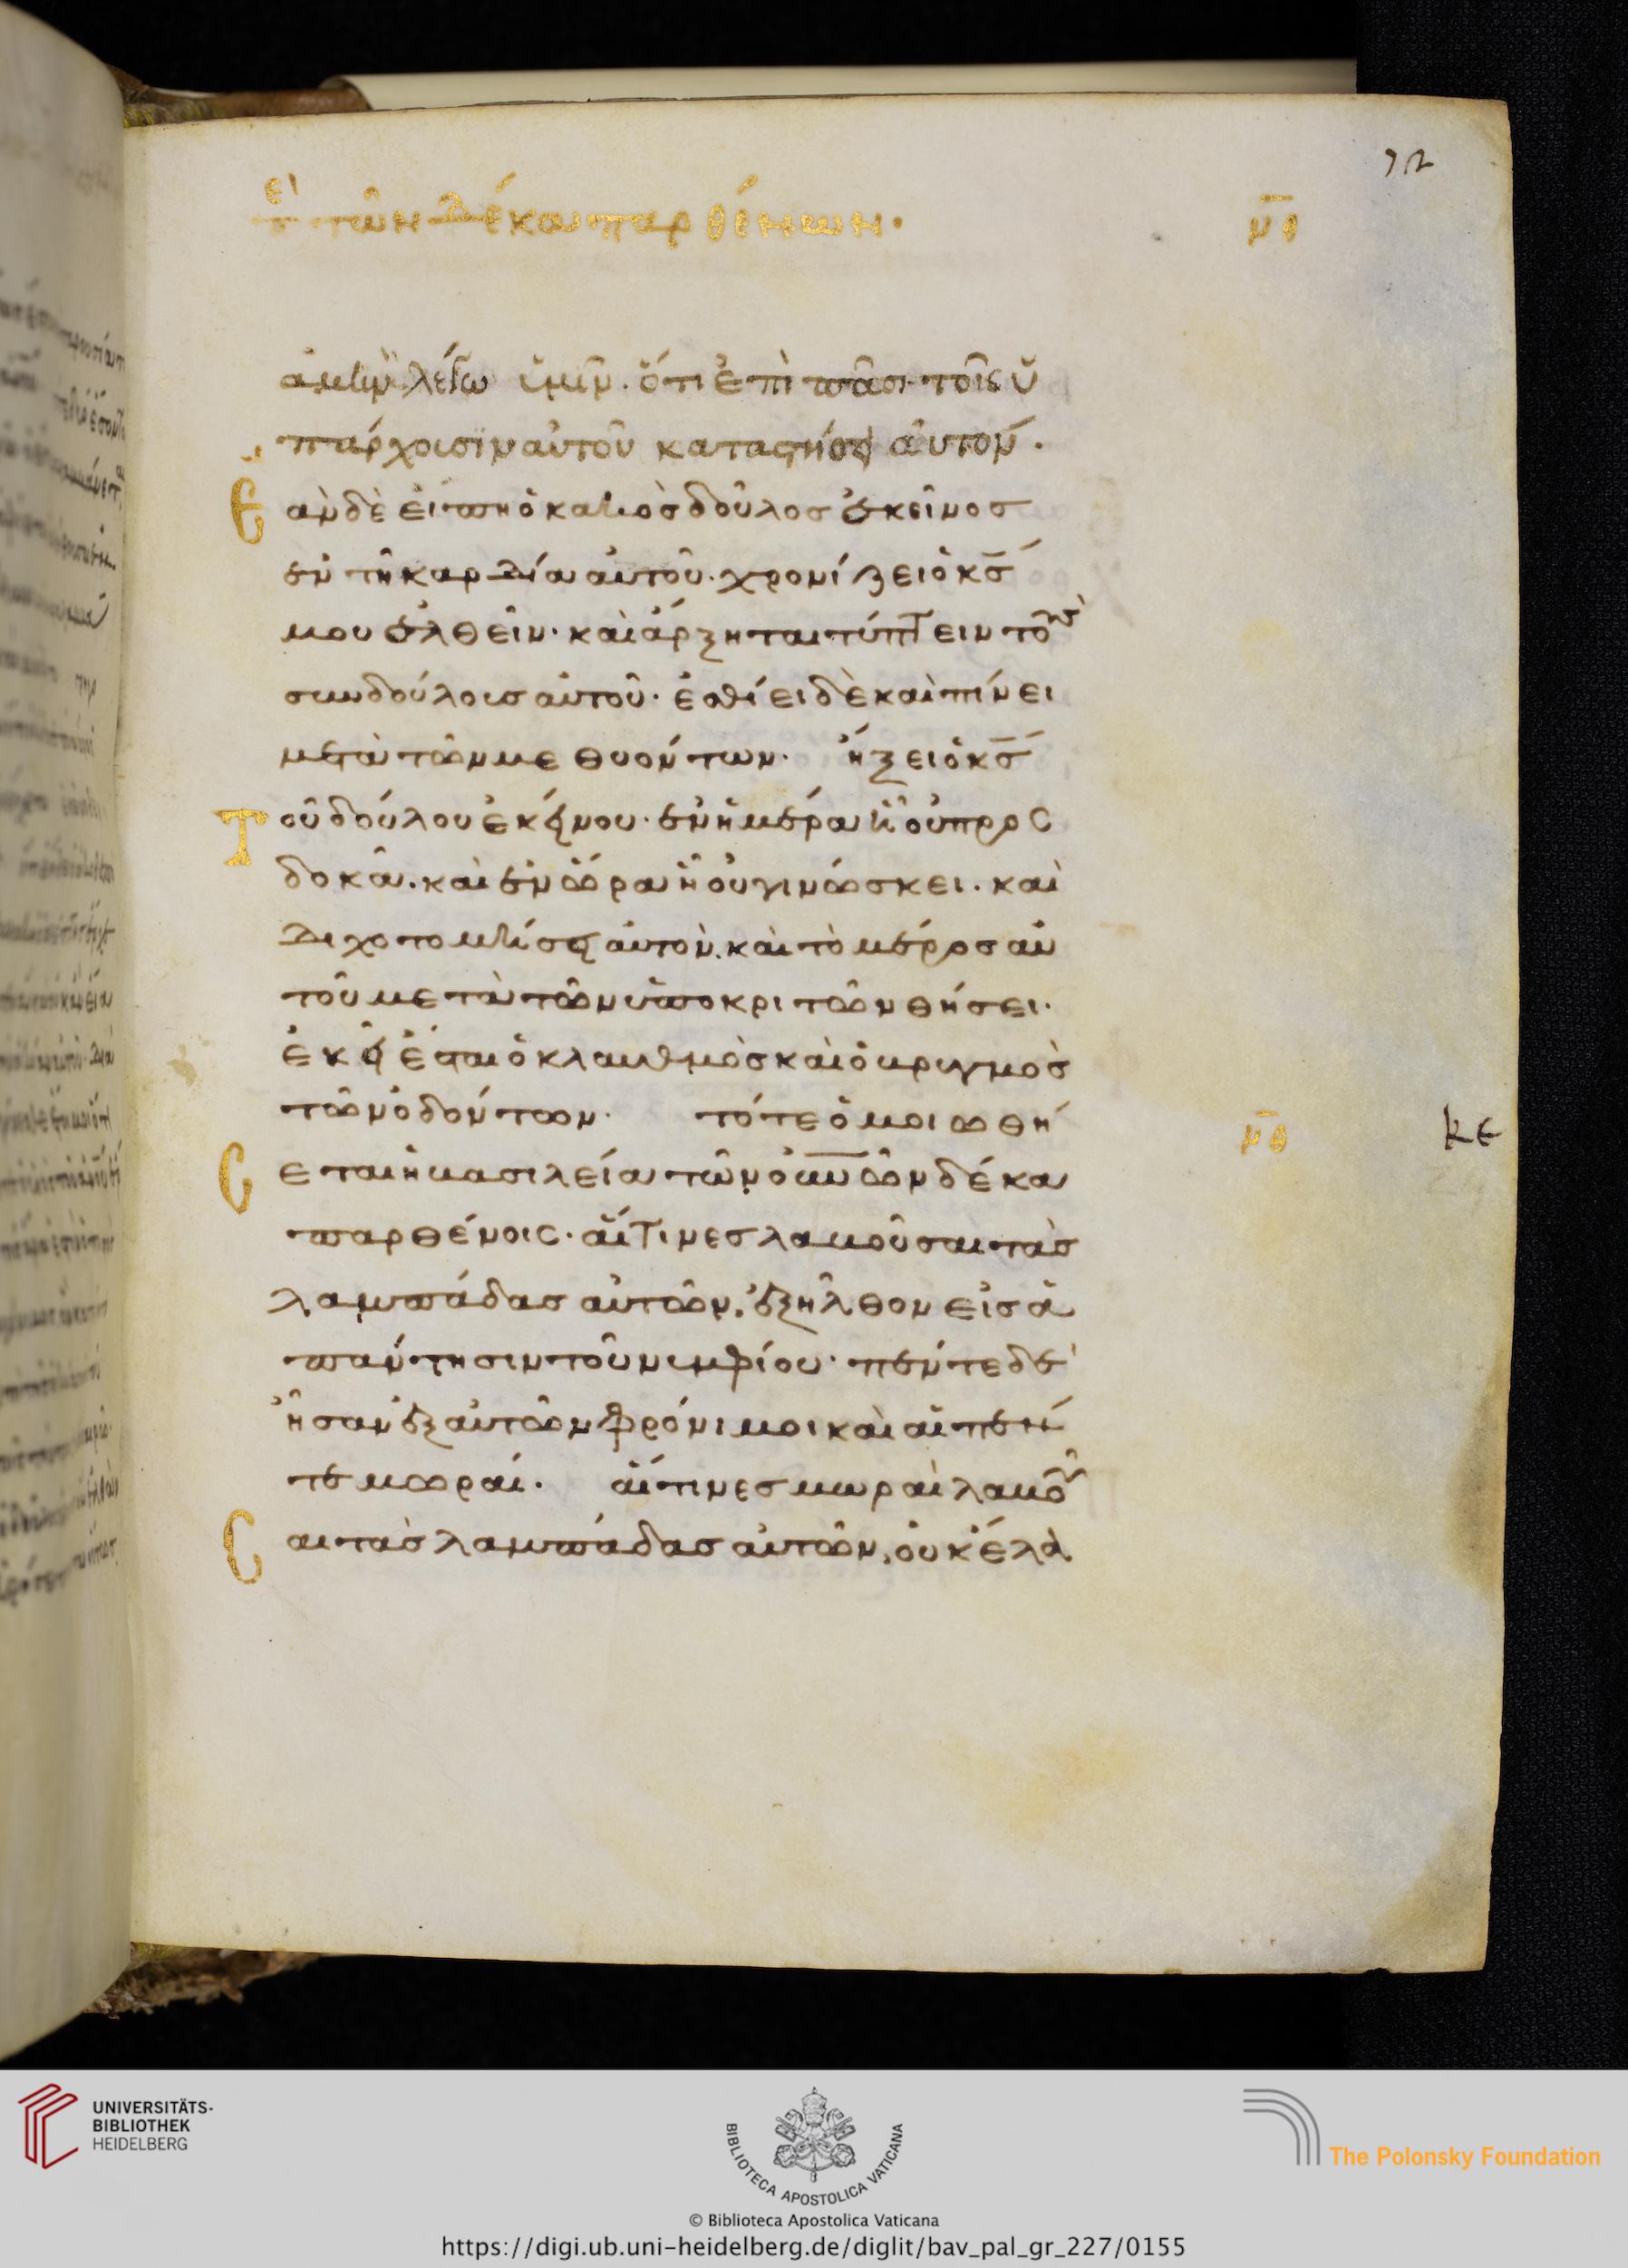 72
πε̣ρ̣ὶ τῶν δέκα παρθένων. ν̅θ̅
ἀμὴν λέγω ὑμῖν. ὅτι ἐπὶ πᾶσι τοῖς ὑ
πάρχουσιν αὐτοῦ καταστήσει αὐτόν.
Ἐὰν δὲ εἴπη ὁ κακὸς δοῦλος ἐκεῖνος
ἐν τῆ καρδία αὐτοῦ. χρονίζει ὁ κ̅ς̅
μου ἐλθεῖν. καὶ ἄρξηται τύπτειν τοὺς
συνδούλους αὐτοῦ. ἐσθίει δὲ καὶ πίνει
μετὰ τῶν μεθυόντων. ἥξει ὁ κ̅ς̅
Τοῦ δούλου ἐκείνου. ἐν ἡμέρα ἧ οὐ προς
δοκᾶ. καὶ ἐν ὥρα ἧ οὐ γινώσκει. καὶ
διχοτομήσει αὐτὸν. καὶ τὸ μέρος αὐ
τοῦ μετὰ τῶν ὑποκριτῶν θήσει.
ἐκεῖ ἔσται ὁ κλαυθμὸς καὶ ὁ βρυγμὸς
τῶν ὀδόντων. τότε ὁμοιωθή ν̅θ̅ κε
Σεται ἡ βασιλεία τῶν ο̅υ̅ν̅ῶν δέκα
παρθένοις. αἵτινες λαβοῦσαι τὰς
λαμπάδας αὐτῶν. ἐξῆλθον εἰς ἀ
πάντησιν τοῦ νυμφίου. πέντε δὲ
ἦσαν ἐξ αὐτῶν φρόνιμοι καὶ αἱ πέν
τε μωραί. αἵτινες μωραὶ λαβοῦ
Σαι τὰς λαμπάδας αὐτῶν, οὐκ ἔλα
UNIVERSITÄTS-
BIBLIOTHEK
HEIDELBERG
BIBLIOTECA APOSTOLICA VATICANA
The Polonsky Foundation
© Biblioteca Apostolica Vaticana
https://digi.ub.uni-heidelberg.de/diglit/bav_pal_gr_227/0155